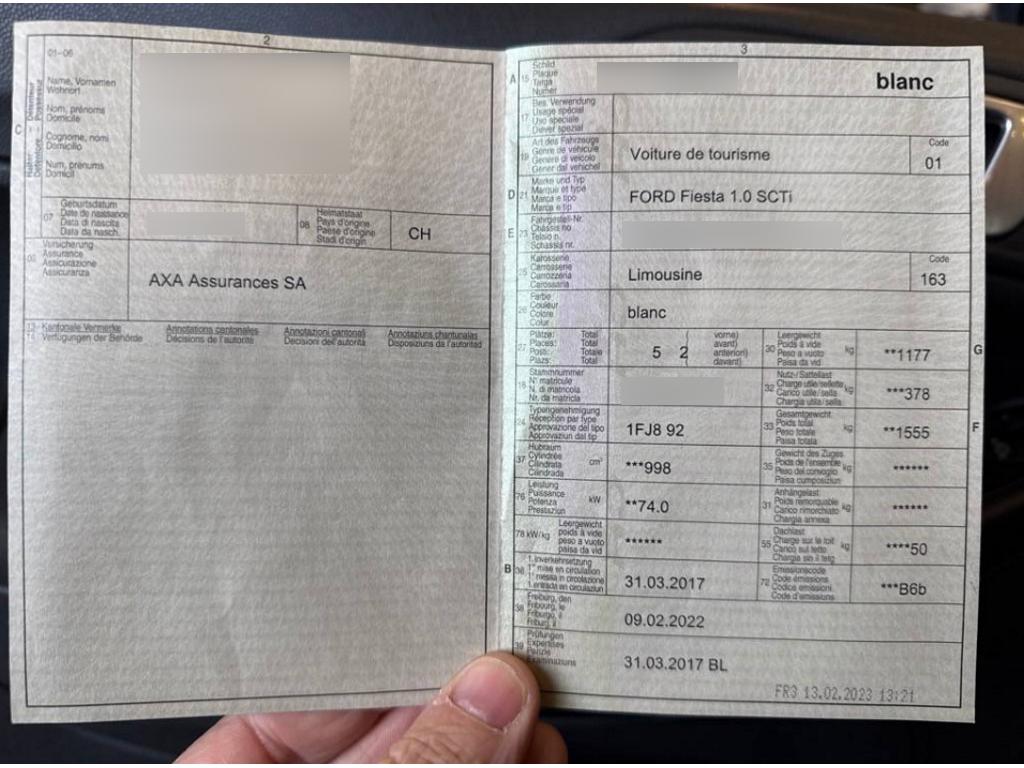 2
01-06
Name, Vornamen
Wohnort
Nom, prénoms
Domicile
Cognome, nomi
Domicilio
Num, prenums
Domicil
C
07
Geburtsdatum
Date de naissance
Data di nascita
Data da nasch.
08
Heimatstaat
Pays d'origine
Paese d'origine
Stadi d'origin
CH
Versicherung
Assurance
Assicurazione
Assicuranza
AXA Assurances SA
Kantonale Vermerke
Verfügungen der Behörde
Annotations cantonales
Décisions de l'autorité
Annotazioni cantonali
Decisioni dell'autorità
Annotaziuns chantunalas
Disposiziuns da l'autoritad
3
A
15
Schild
Plaque
Targa
Numer
blanc
17
Bes. Verwendung
Usage spécial
Uso speciale
Diever spezial
19
Art des Fahrzeugs
Genre de véhicule
Genere di veicolo
Gener dal vehichel
Voiture de tourisme
Code
01
D
21
Marke und Typ
Marque et type
Marca e tipo
Marca e tip
FORD Fiesta 1.0 SCTi
E
23
Fahrgestell-Nr.
Châssis no
Telaio n.
Schassis nr.
25
Karosserie
Carrosserie
Carrozzeria
Carossaria
Limousine
Code
163
26
Farbe
Couleur
Colore
Colur
blanc
27
Plätze: Total
Places: Total
Posti: Totale
Plazs: Total
5 2
( vorne)
avant)
anteriori)
davant)
30
Leergewicht
Poids à vide
Peso a vuoto
Paisa da vid
kg
**1177
G
18
Stammnummer
N° matricule
N. di matricola
Nr. da matricla
32
Nutz-/Sattellast
Charge utile/sellette
Carico utile/sella
Chargia utila/sella
kg
***378
24
Typengenehmigung
Réception par type
Approvazione del tipo
Approvaziun dal tip
1FJ8 92
33
Gesamtgewicht
Poids total
Peso totale
Paisa totala
kg
**1555
F
37
Hubraum
Cylindrée
Cilindrata
Cilindrada
cm³
***998
35
Gewicht des Zuges
Poids de l'ensemble
Peso del convoglio
Paisa cumposiziun
kg
******
76
Leistung
Puissance
Potenza
Prestaziun
kW
**74.0
31
Anhängelast
Poids remorquable
Carico rimorchiato
Chargia annexa
kg
******
78 kW/kg
Leergewicht
poids à vide
peso a vuoto
paisa da vid
******
55
Dachlast
Charge sur le toit
Carico sul tetto
Chargia sin il tetg
kg
****50
B
36
1. Inverkehrsetzung
1re mise en circulation
1a messa in circolazione
1. entrada en circulaziun
31.03.2017
72
Emissionscode
Code émissions
Codice emissioni
Code d'emissiuns
***B6b
38
Freiburg, den
Fribourg, le
Friburgo, il
Friburg, il
09.02.2022
39
Prüfungen
Expertises
Perizie
Examinaziuns
31.03.2017 BL
FR3 13.02.2023 13:21